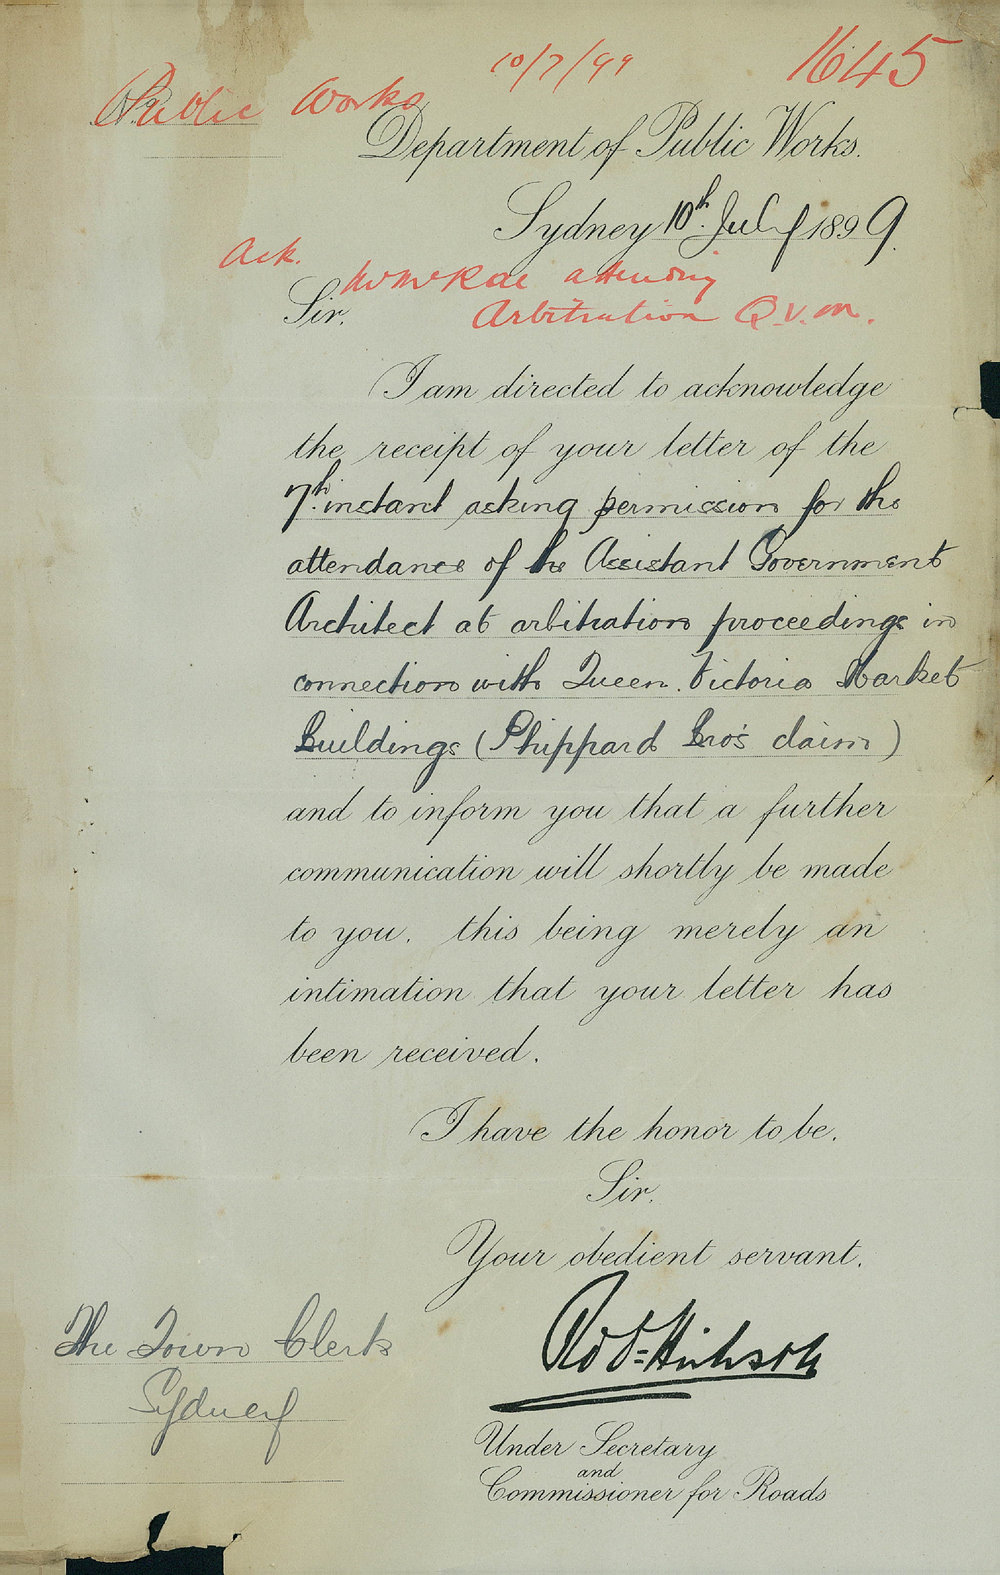 10/7/99 1645
Public Works
Department of Public Works.
Sydney 10th July 1899.
Ack. Mr McRae attending
Sir, Arbitration Q.V.M.
I am directed to acknowledge
the receipt of your letter of the
7th instant asking permission for the
attendance of the Assistant Government
Architect at arbitration proceedings in
connection with Queen Victoria Market
Buildings (Phippard Bro's claim)
and to inform you that a further
communication will shortly be made
to you, this being merely an
intimation that your letter has
been received.
I have the honor to be,
Sir,
Your obedient servant,
Robt Hickson
The Town Clerk
Sydney
Under Secretary
and
Commissioner for Roads